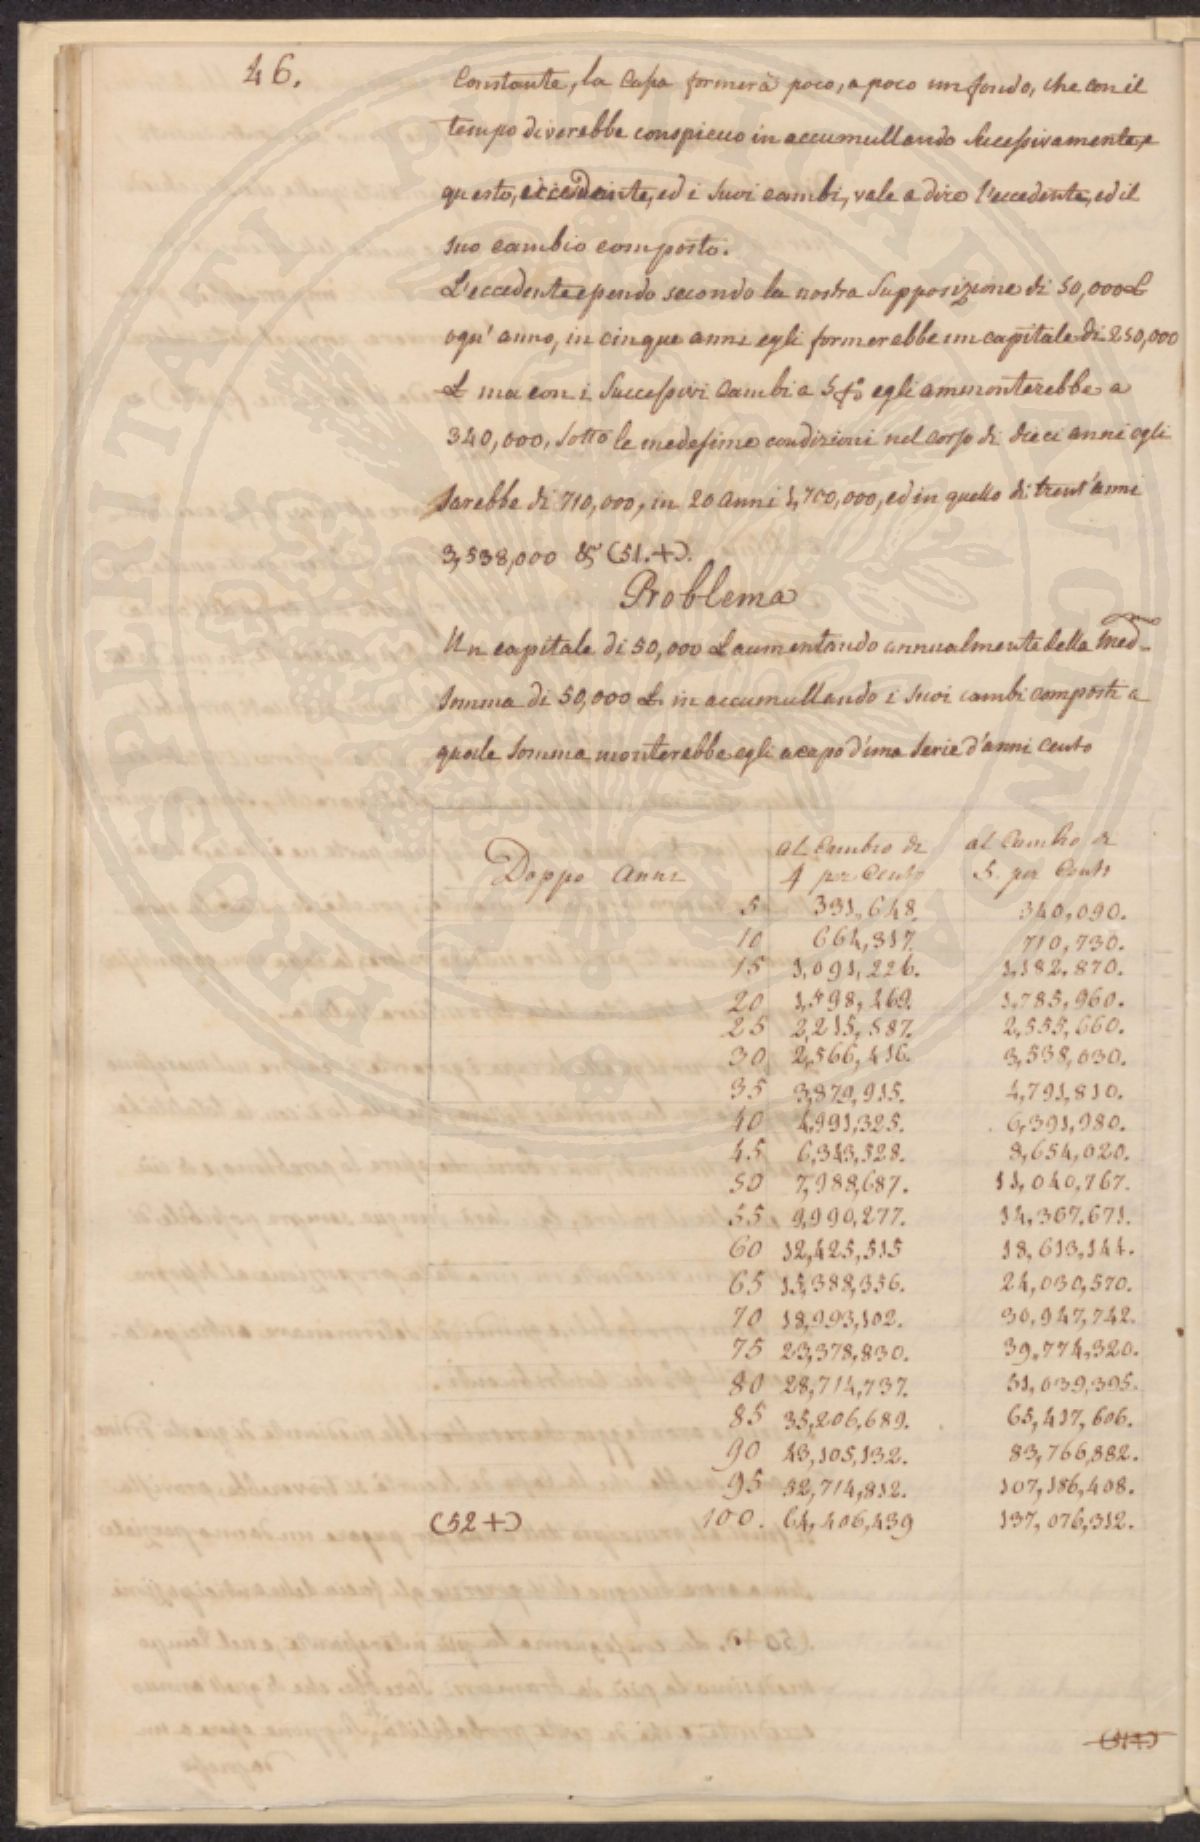 46.
Constante, la Cassa formerà poco, a poco un fondo, che con il
tempo diverebbe conspicuo in accumullando successivamente, e
questo, eccedente, ed i suoi cambi, vale a dire l'eccedente, ed il
suo cambio composto.
L'eccedente essendo secondo la nostra supposizione di 50,000 £
ogn' anno, in cinque anni egli formerebbe un capitale di 250,000
£ ma con i successivi cambi a 5 p% egli ammonterebbe a
340,000. sotto le medesime condizioni nel corso di dieci anni egli
sarebbe di 710,000, in 20 anni 1,700,000, ed in quello di trent'anni
3,538,000 & (51.+).
Problema
Un capitale di 50,000 £ aumentando annualmente della med-
somma di 50,000 £ in accumullando i suoi cambi composti a
quale somma monterebbe egli a capo d'una serie d'anni cento
Doppo Anni | al Cambio di 4 per Cento | al Cambio di 5. per Cento
5 331,648. 340,090.
10 664,317. 710,730.
15 1,091,226. 1,182,870.
20 1,598,269. 1,785,960.
25 2,215,587. 2,555,660.
30 2,566,416. 3,538,030.
35 3,879,915. 4,791,810.
40 4,991,325. 6,391,980.
45 6,343,528. 8,654,020.
50 7,988,687. 11,040,767.
55 9,990,277. 14,367,671.
60 12,425,515 18,613,144.
65 15,388,356. 24,030,570.
70 18,993,102. 30,947,742.
75 23,378,830. 39,774,320.
80 28,714,737. 51,039,395.
85 35,206,689. 65,417,606.
90 43,105,132. 83,766,882.
95 52,714,812. 107,186,408.
(52+) 100. 64,406,439 137,076,312.
PROSPERITATI PUBLICAE AUGENDAE